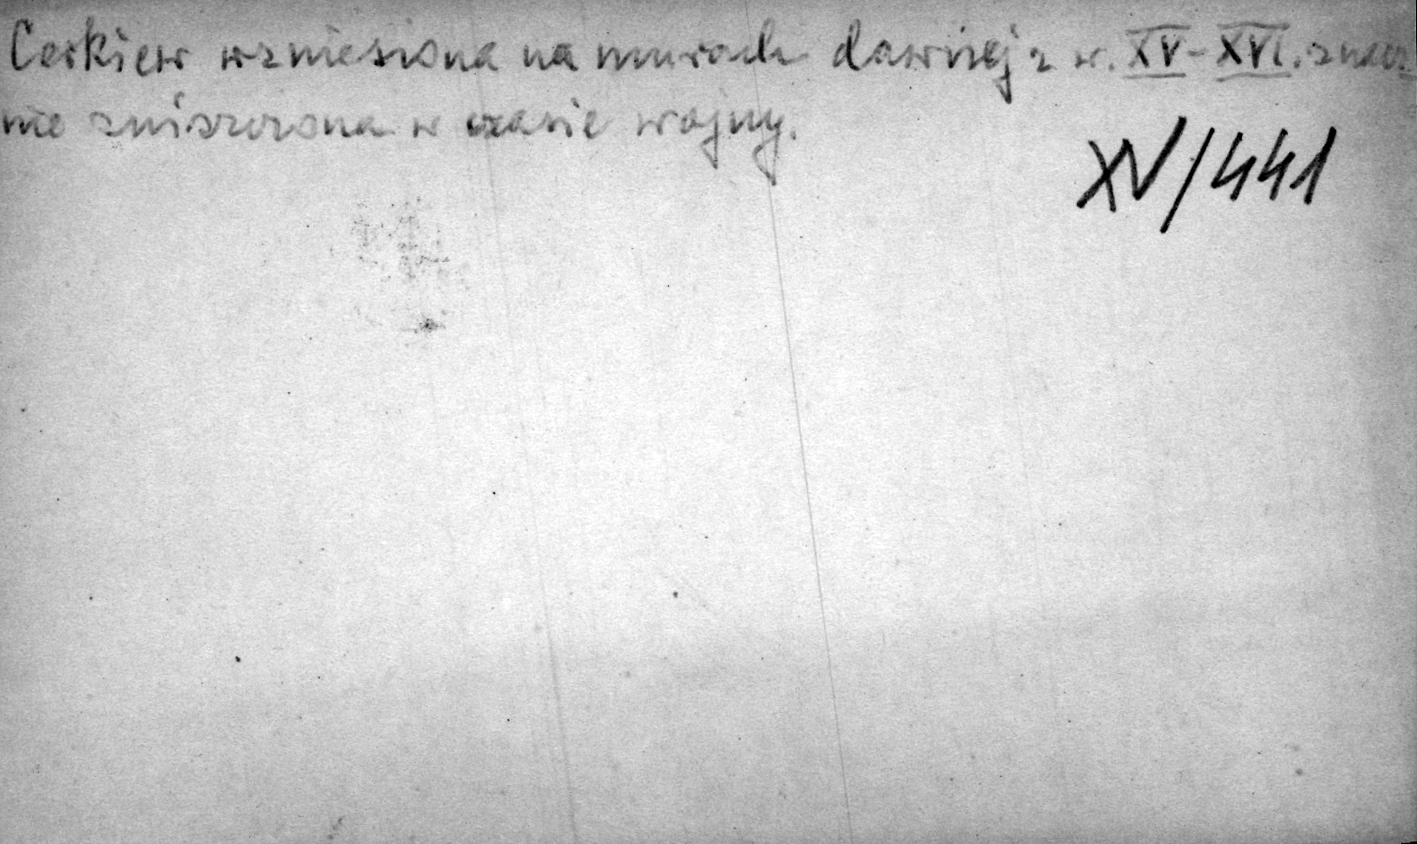 Cerkiew wzniesiona na murach dawnej z w. XV-XVI. znacz-
nie zniszczona w czasie wojny.
XV/441